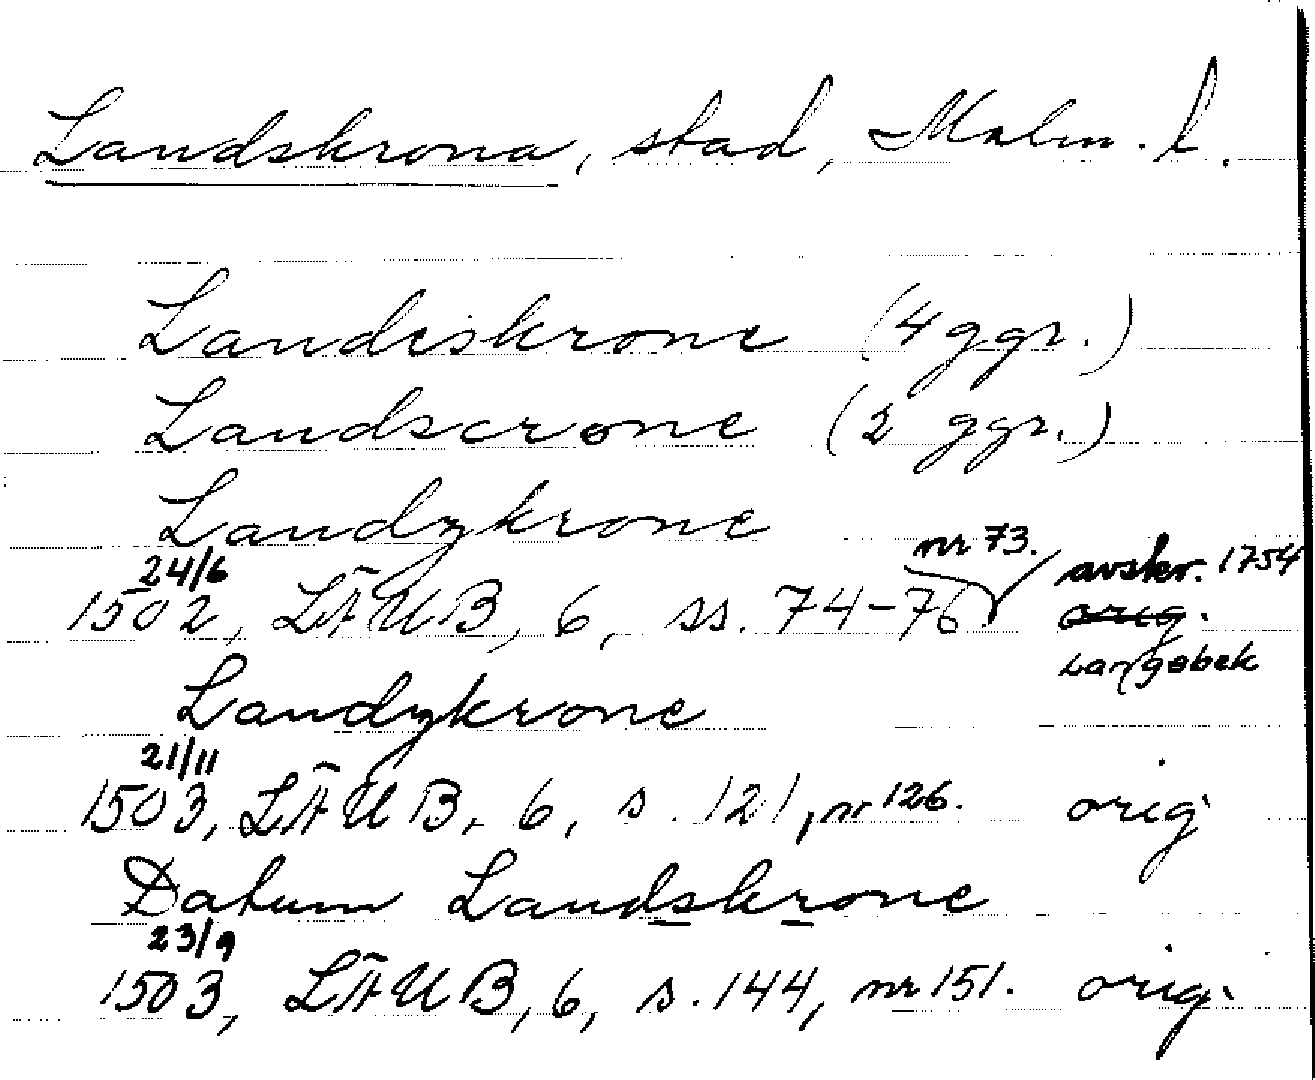 Landskrona, stad, Malm. l.
Landiskrone (4 ggr.)
Landscrone (2 ggr.)
Landzkrone
24/6 nr 73. avskr. 1754
1502, LÄUB, 6, ss. 74-76 orig.
Langebek
Landzkrone
21/11
1503, LÄUB, 6, s. 121, nr 126. orig
Datum Landskrone
23/9
1503, LÄUB, 6, s. 144, nr 151. orig.